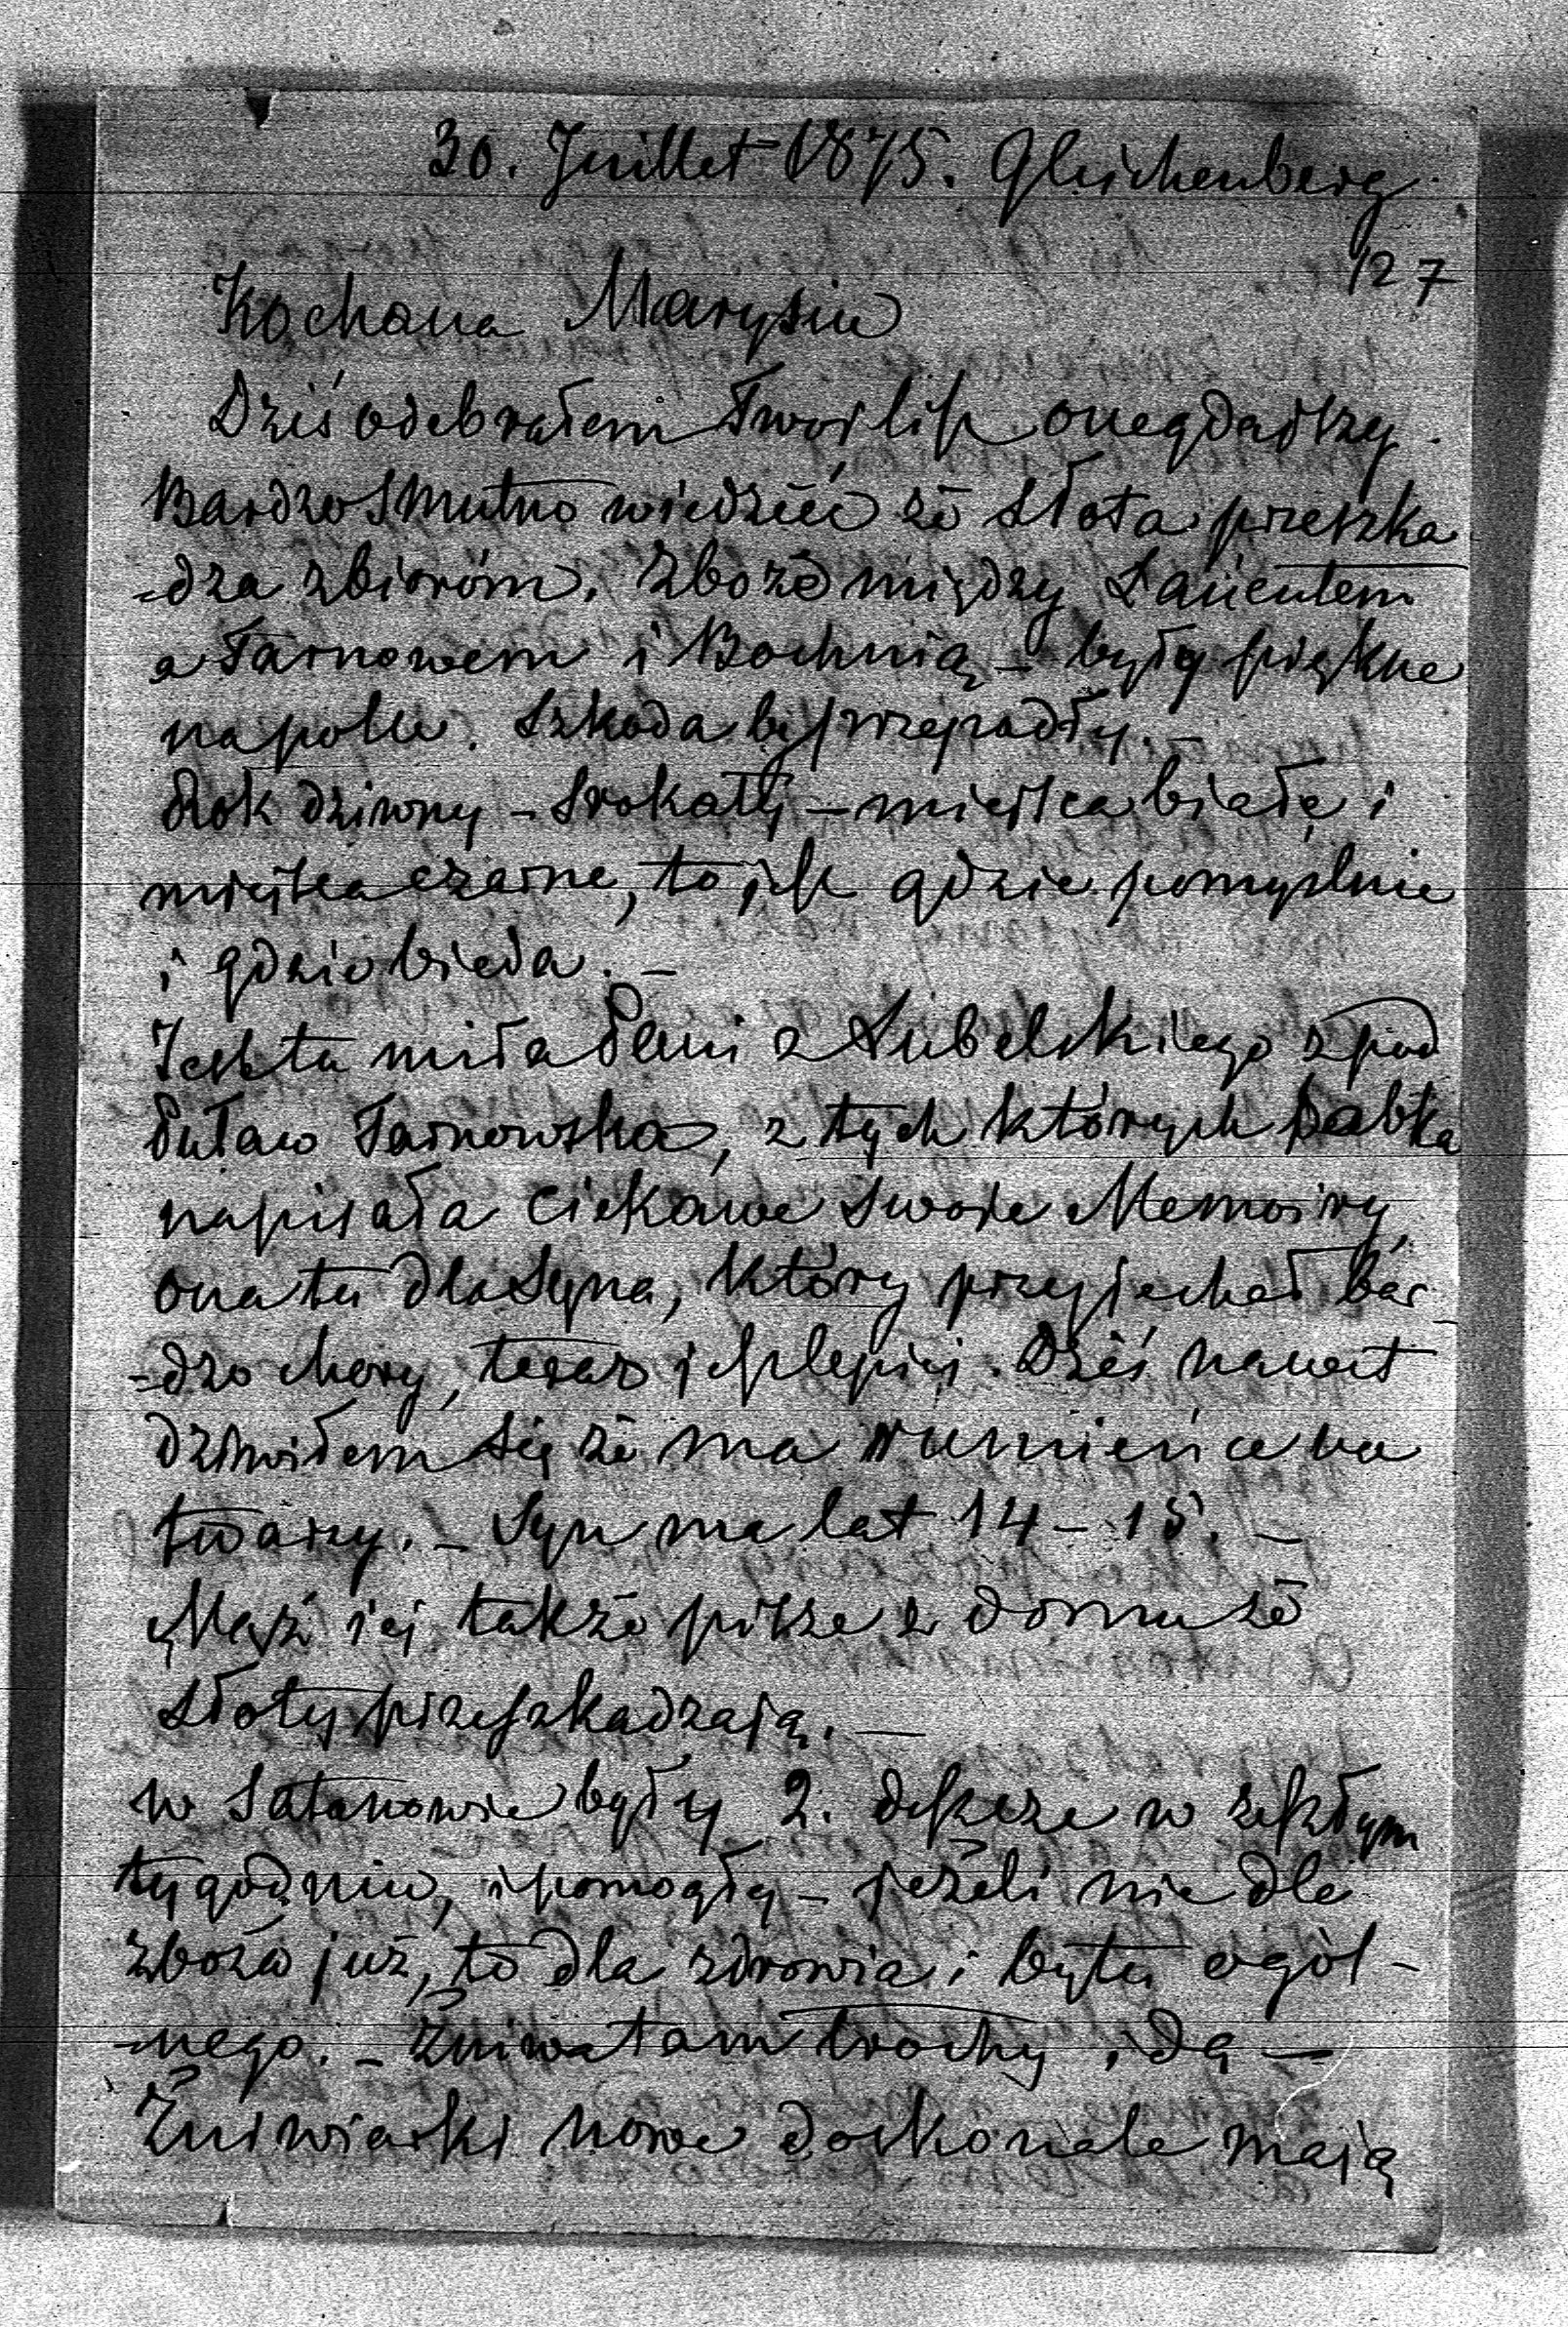 30. Juillet 1875. Gleichenberg
127
Kochana Marysiu
Dziś odebrałem Twoj list onegdajszy.
Bardzo smutno wiedzieć że słota przeszka
=dza zbioróm. Zboże między Łańcutem
a Tarnowem i Bochnią – były piękne
na polu. Szkoda by przepadły. –
Rok dziwny – srokaty – miejsca białe i
miejsca czarne, to jest gdzie pomyślnie
i gdzie bieda. –
Jest tu miła Pani z Lubelskiego z pod
Puław Tarnowska, z tych których Babka
napisała ciekawe swoje Memoiry,
ona tu dla Syna, który przyjechał bar
=dzo chory, teraz jest lepiej. Dziś nawet
dziwiłem się że ma rumieńce na
twarzy. – Syn ma lat 14 – 15. –
Mąż jej także pisze z domu że
słoty przeszkadzają. –
w Satanowie były 2. deszcze w zeszłym
tygodniu, i pomogły – jeżeli nie dla
zboża już, to dla zdrowia i bytu ogól-
-nego. – Żniwa tam trochy idą –
Żniwiarki nowe doskonale mają